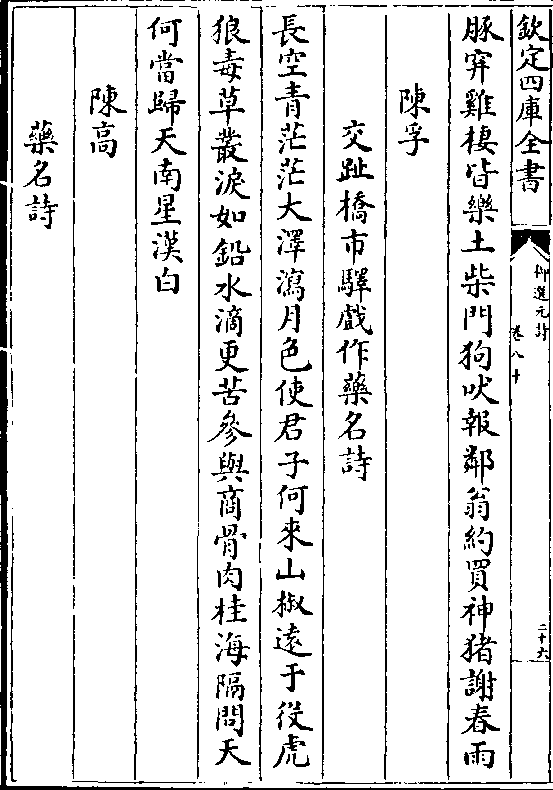 欽定四庫全書
御選元詩
卷八十
二十六
豚穽雞棲皆樂土柴門狗吠報鄰翁約買神猪謝春雨
陳孚
交趾橋市驛戲作藥名詩
長空青茫茫大澤瀉月色使君子何來山椒遠于役虎
狼毒草叢淚如鉛水滴更苦參與商骨肉桂海隔問天
何當歸天南星漢白
陳高
藥名詩